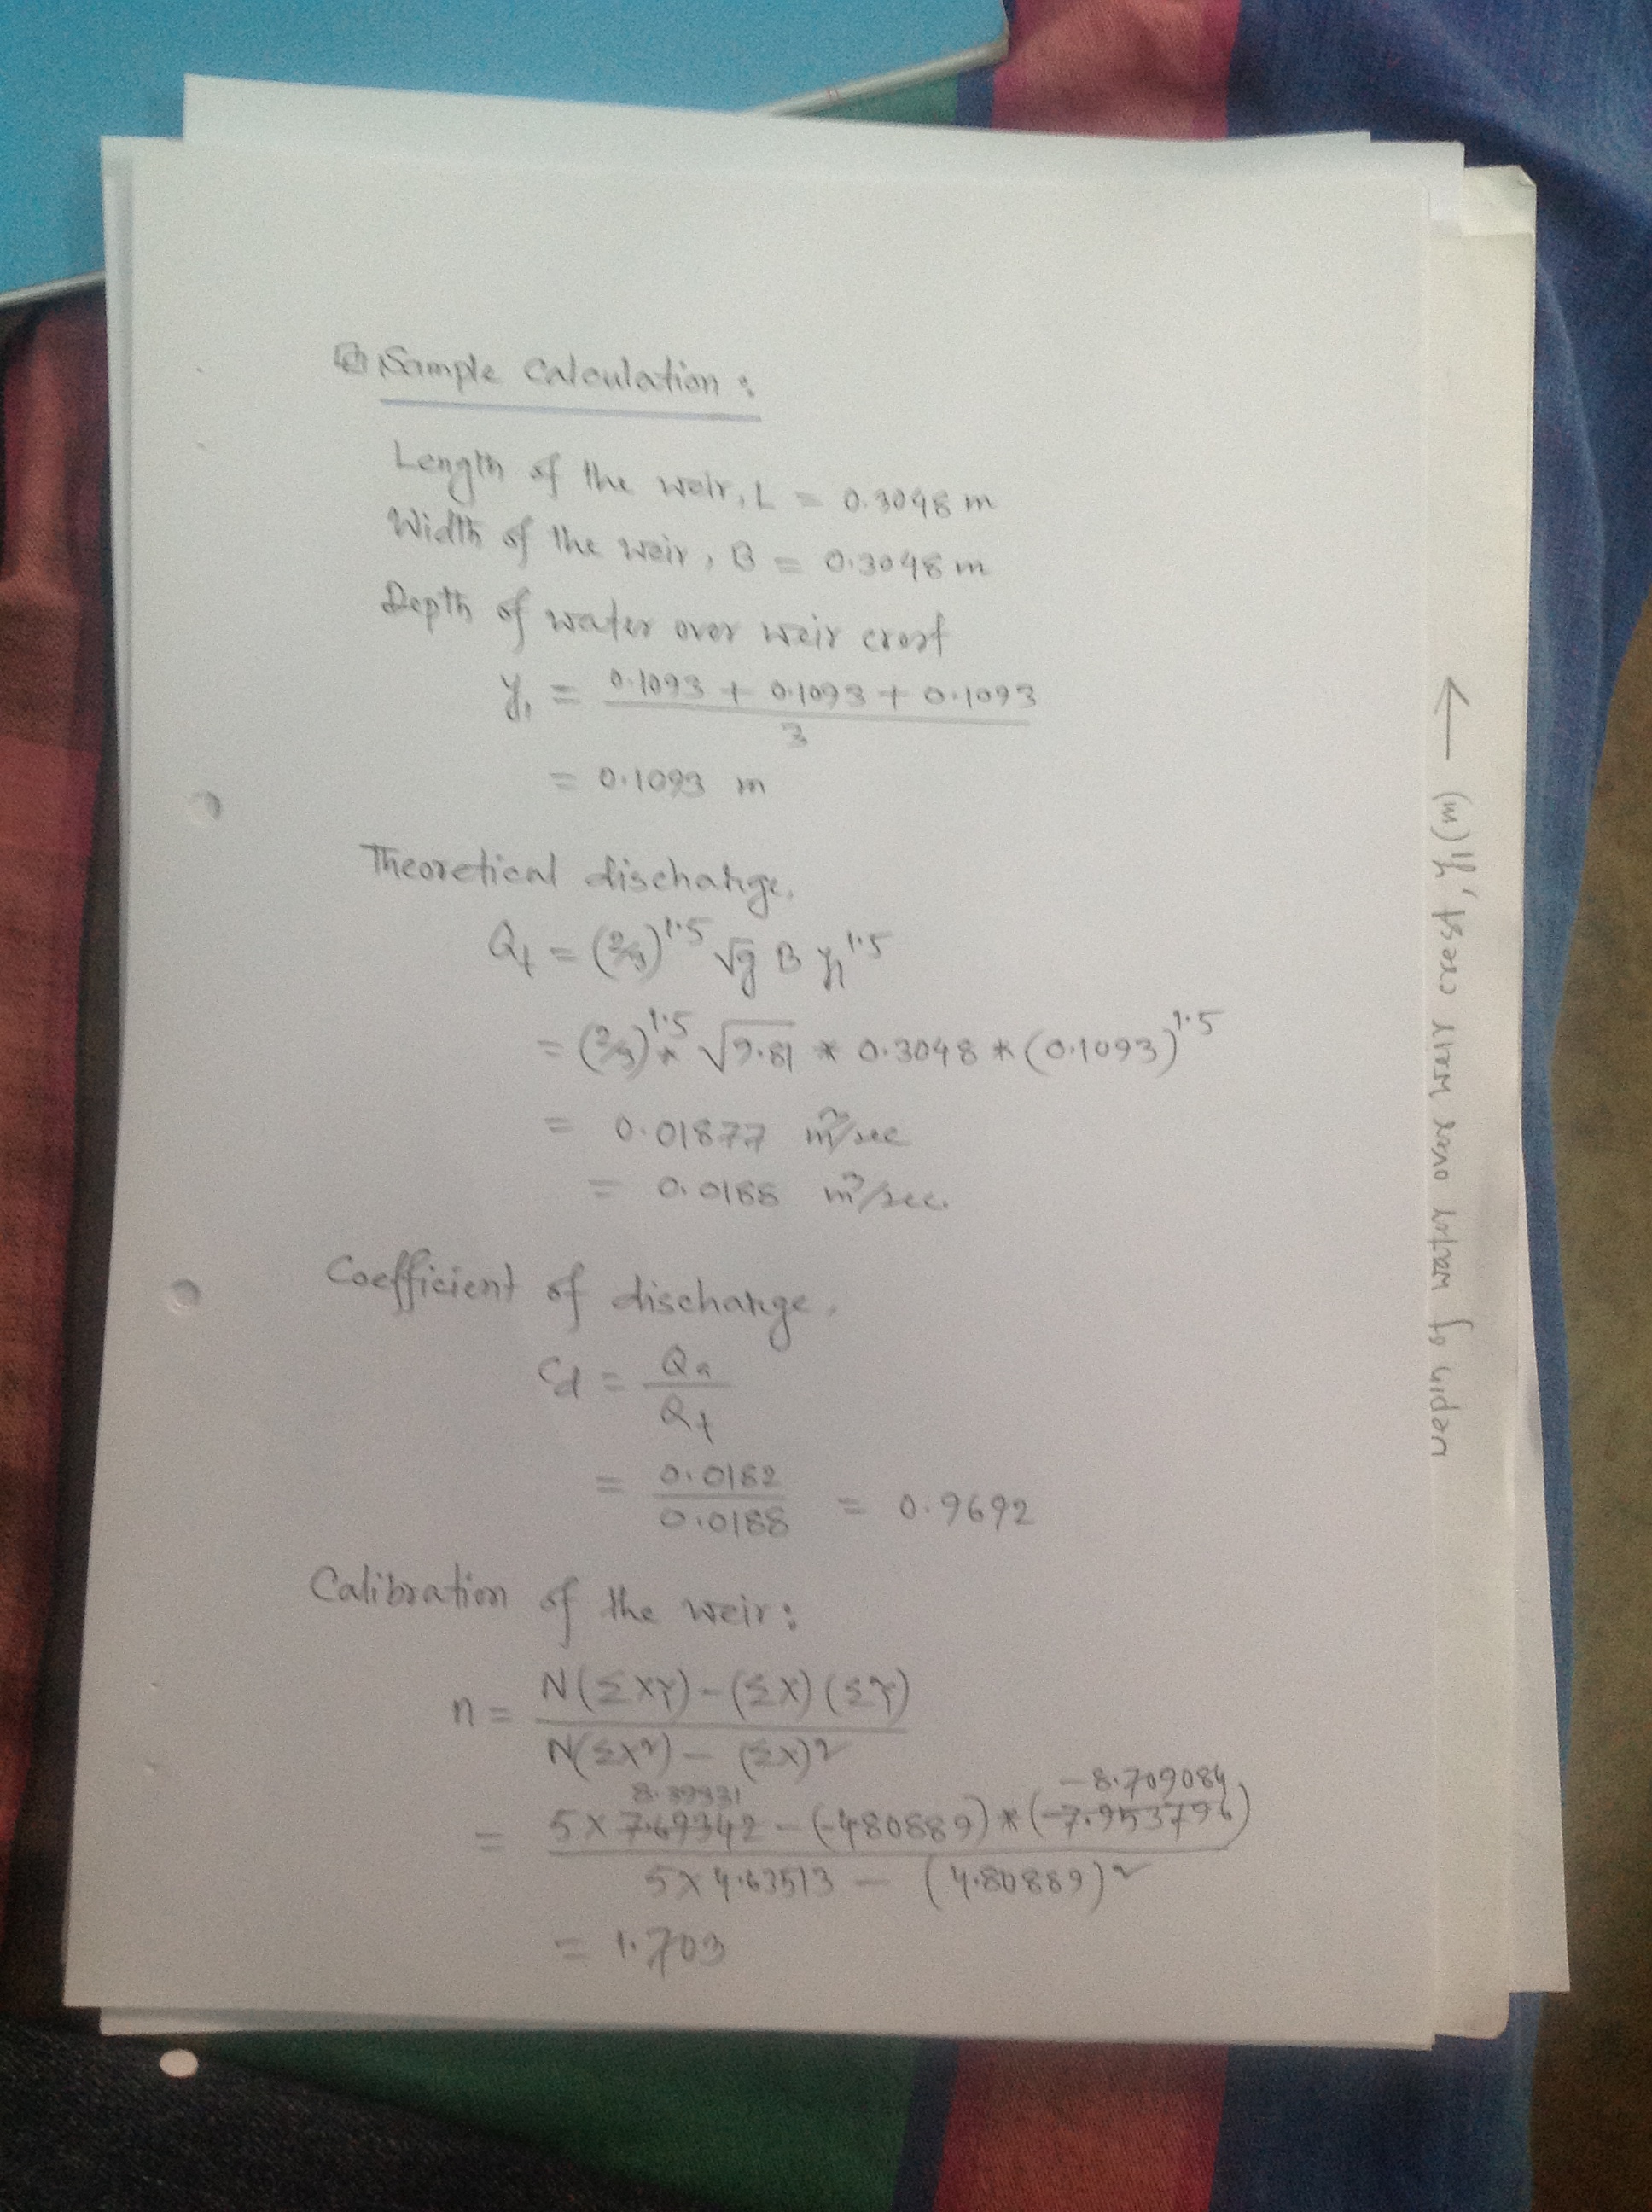 Sample Calculation :
Length of the weir, L = 0.3048 m
Width of the weir, B = 0.3048 m
Depth of water over weir crest
y₁ = (0.1093 + 0.1093 + 0.1093) / 3
= 0.1093 m
Theoretical discharge,
Qt = (2/3)^1.5 √g B y₁^1.5
= (2/3)^1.5 * √9.81 * 0.3048 * (0.1093)^1.5
= 0.01877 m³/sec
= 0.0188 m³/sec.
Coefficient of discharge,
Cd = Qa / Qt
= 0.0182 / 0.0188 = 0.9692
Calibration of the weir :
n = N(ΣXY) - (ΣX)(ΣY) / N(ΣX²) - (ΣX)²
8.39331 -8.709084
= 5 × 7.69342 - (-4.80889) * (-7.953796) / 5 × 4.63513 - (4.80889)²
= 1.703
Depth of water over weir crest, y₁ (m) →